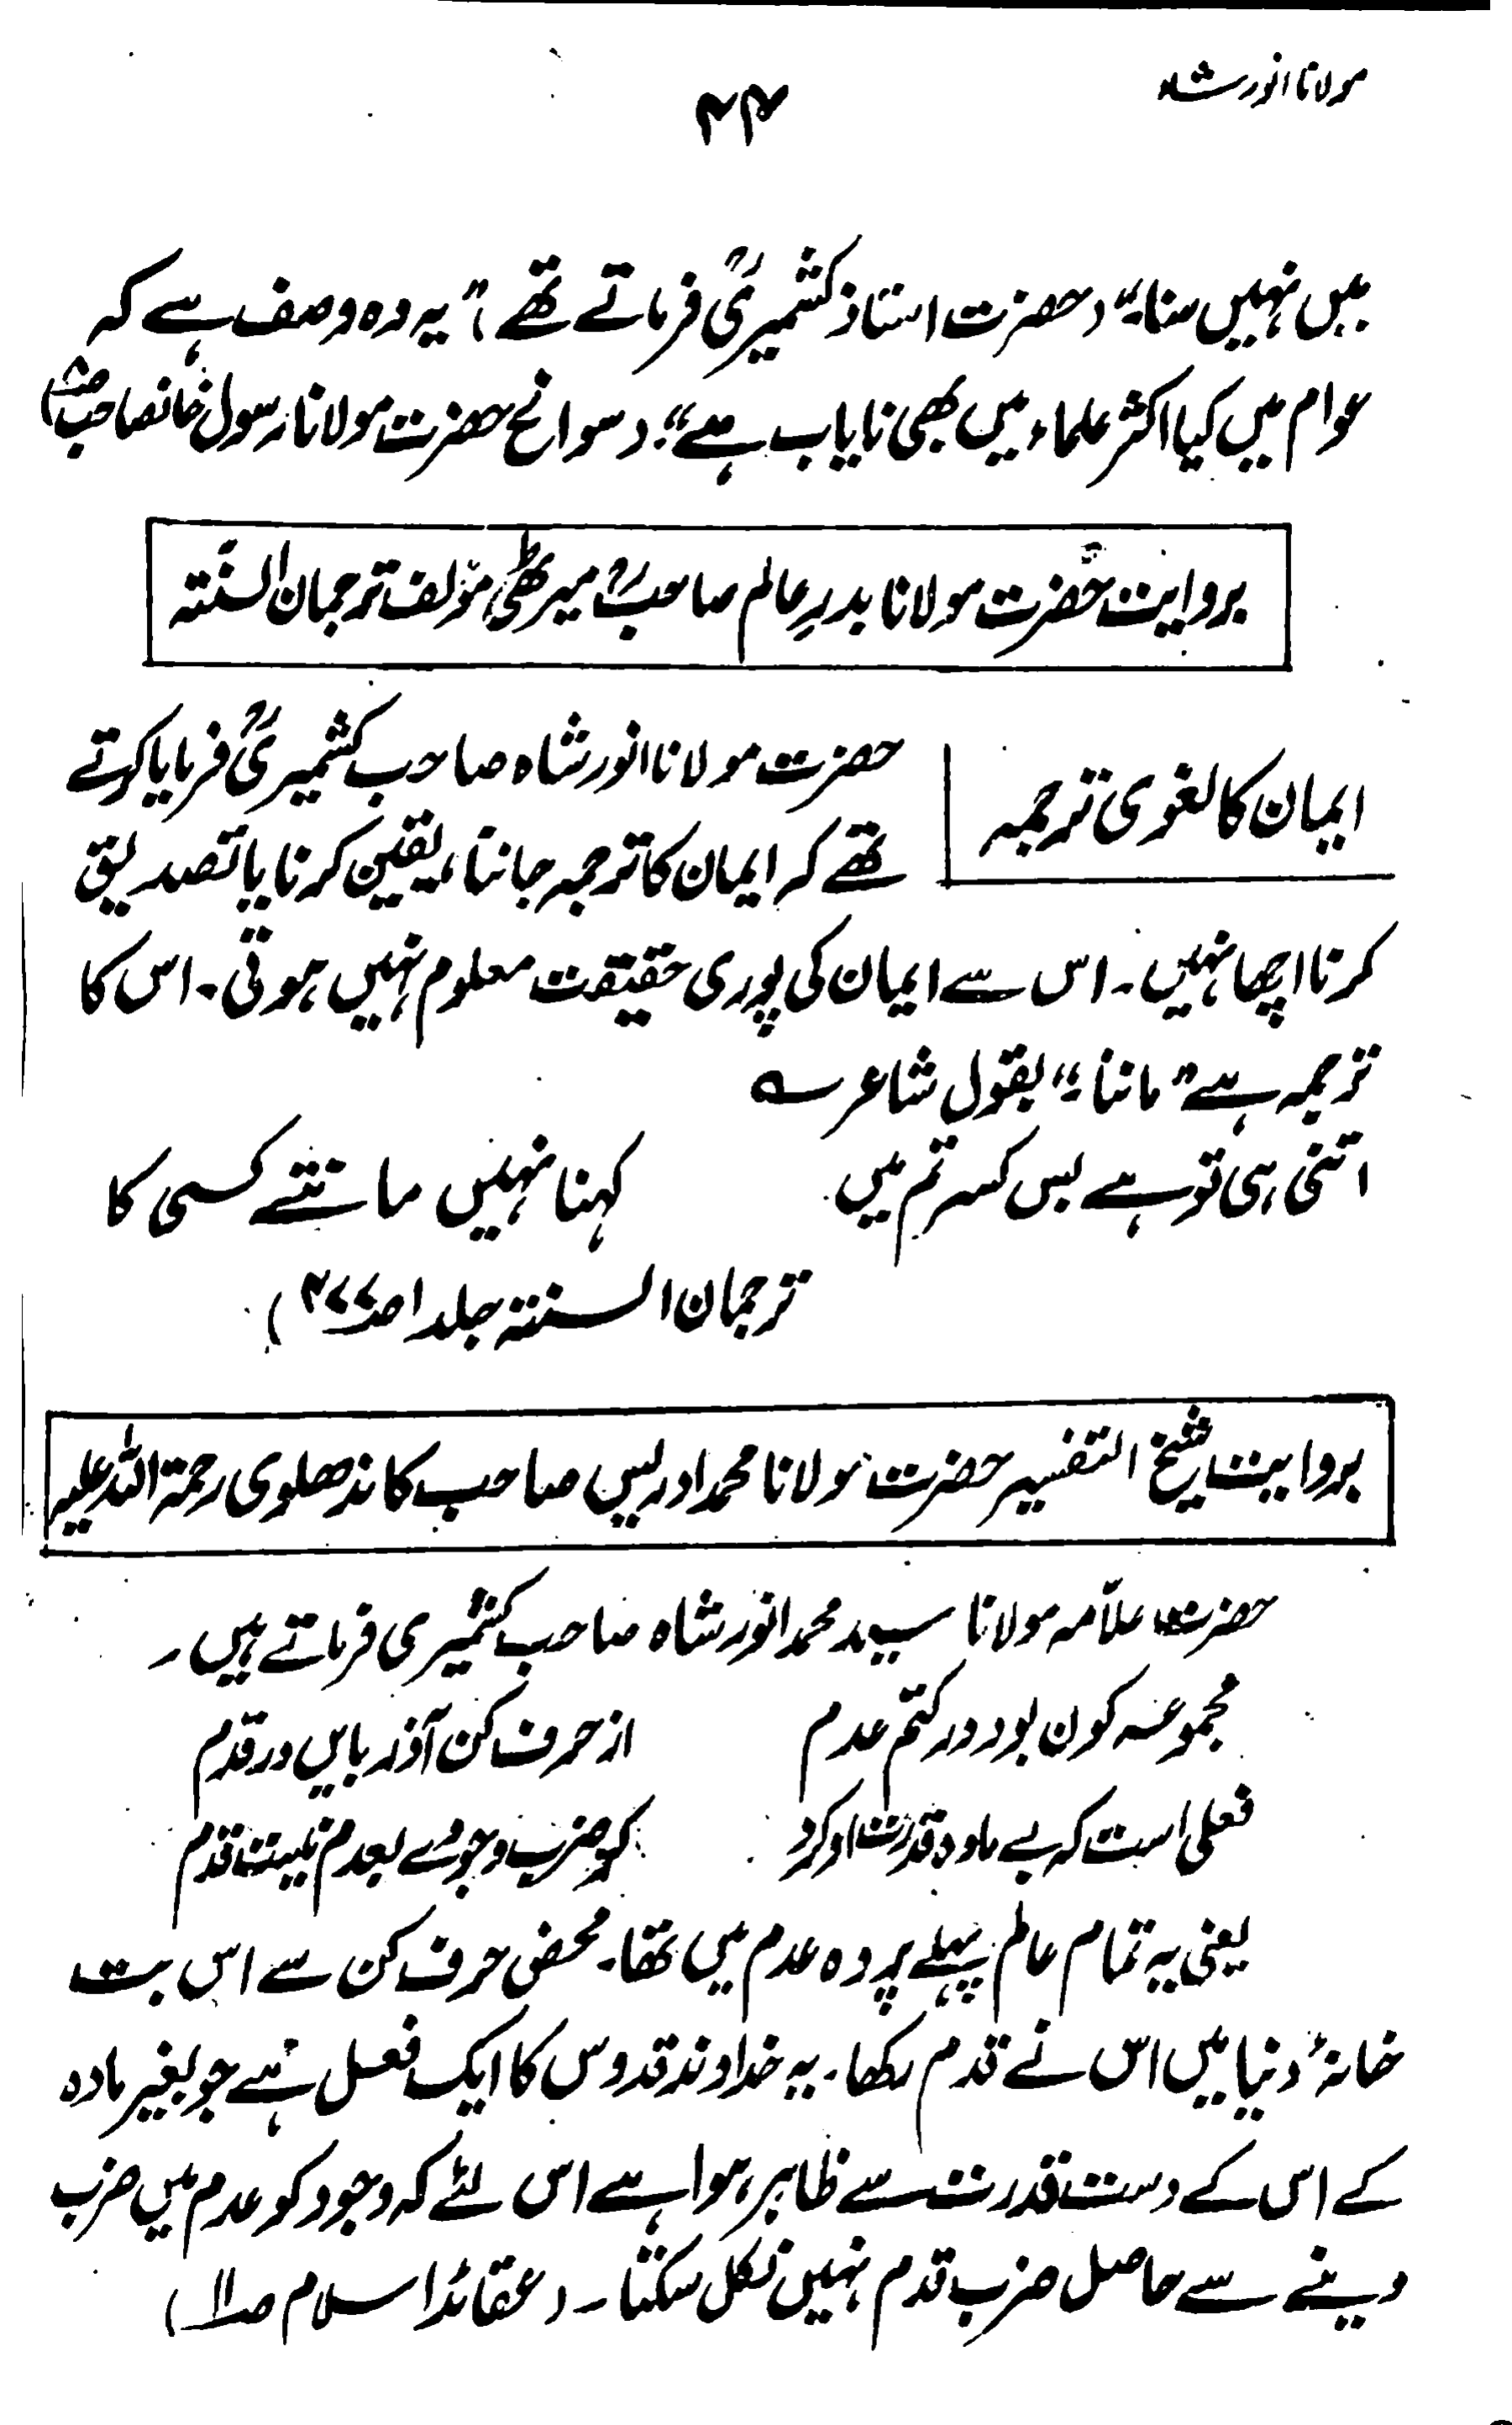 مولانا انور شاہ
۴۴
میں نہیں سنا۔“ (حضرت استاذ کشمیریؒ فرماتے تھے) ”یہ وہ وصف ہے کہ
عوام میں کیا اکثر علماء میں بھی نایاب ہے“۔ (سوانح حضرت مولانا رسول خانصاحب
بروایت حضرت مولانا بدرِ عالم صاحبؒ میرٹھی، مؤلف ترجمان السنّتہ
ایمان کا لغوی ترجمہ
حضرت مولانا انور شاہ صاحب کشمیریؒ فرمایا کرتے
تھے کہ ایمان کا ترجمہ جاننا، یقین کرنا یا تصدیق
کرنا اچھا نہیں۔ اس سے ایمان کی پوری حقیقت معلوم نہیں ہوتی۔ اس کا
ترجمہ ہے ”ماننا۔“ بقول شاعر ؎
اتنی ہی تو ہے بس کسر تم میں کہنا نہیں مانتے کسی کا
ترجمان السنتہ جلد ا صـ۴۷۷)
بروایت شیخ التفسیر حضرت مولانا محمد ادریس صاحب کاندھلوی رحمۃ اللہ علیہ
حضرت علّامہ مولانا سید محمد انور شاہ صاحب کشمیری فرماتے ہیں۔
مجموعہ کون بود در کتم عدم از حرف کن آورد بایں در قدم
فعلی است کہ بے مادہ قدرت او کرد کو ضرب وجودے بعدم نیست قدم
یعنی یہ تمام عالم پہلے پردہ عدم میں تھا۔ محض حرف کن سے اس بت
خانۂ دنیا میں اس نے قدم رکھا۔ یہ خداوند قدوس کا ایک فعل ہے جو بغیر مادہ
کے اس کے دست قدرت سے ظاہر ہوا ہے اس لئے کہ وجود کو عدم میں ضرب
دینے سے حاصل ضرب قدم نہیں نکل سکتا۔ (عقائد اسلام صـ۱۱)